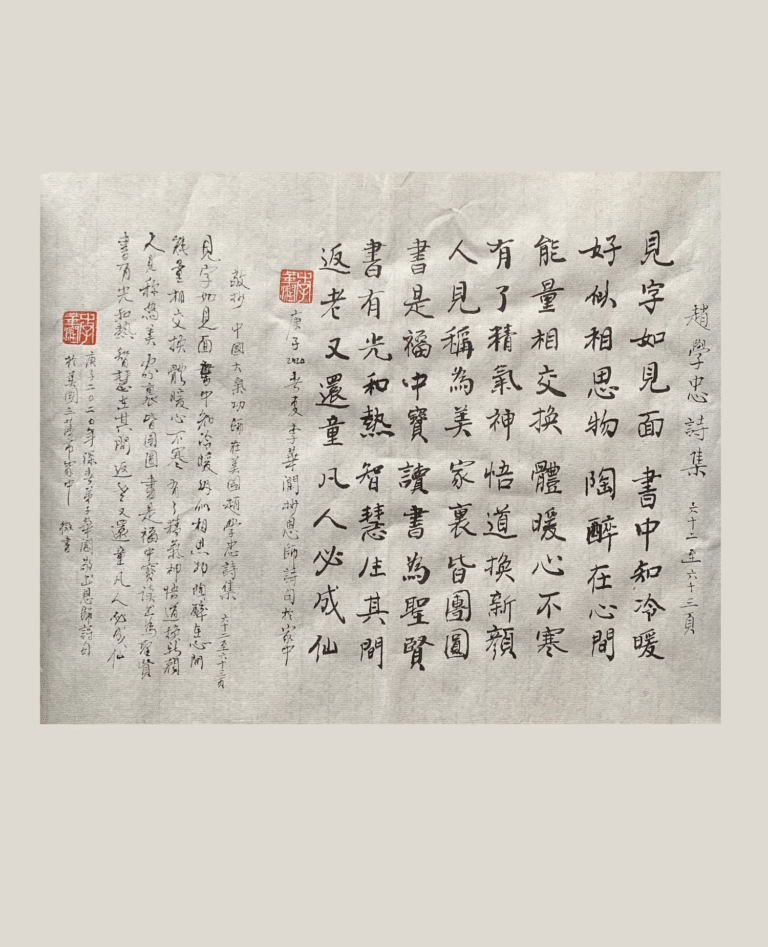 趙學忠詩集 六十二至六十三頁
見字如見面 書中知冷暖
好似相思物 陶醉在心間
能量相交換 體暖心不寒
有了精氣神 悟道換新顔
人見稱為美 家裏皆團圓
書是福中寶 讀書為聖賢
書有光和熱 智慧住其間
返老又還童 凡人必成仙
庚子2020春夏李華潤抄恩師詩句於家中
敬抄 中國大氣功師在美國趙學忠詩集 六十二至六十三頁
見字如見面 書中知冷暖 好似相思物 陶醉在心間
能量相交換 體暖心不寒 有了精氣神 悟道換新顔
人見稱為美 家裏皆團圓 書是福中寶 讀書為聖賢
書有光和熱 智慧在其間 返老又還童 凡人必成仙
庚子二〇二〇年 弟子華潤 恩師詩句
於美國三藩市家中 敬書